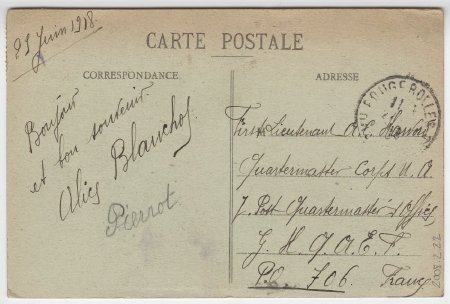 29 Juin 1918
CARTE POSTALE
CORRESPONDANCE
ADRESSE
Bonjour
et bon souvenir
Alice Blanchot
Pierrot
FOUGEROLLES
First Lieutenant A.
Quartermaster Corps U.A
Post Quartermaster's Office
G. H. Q. A. E. F.
P.O. 706. France
2008.2.22